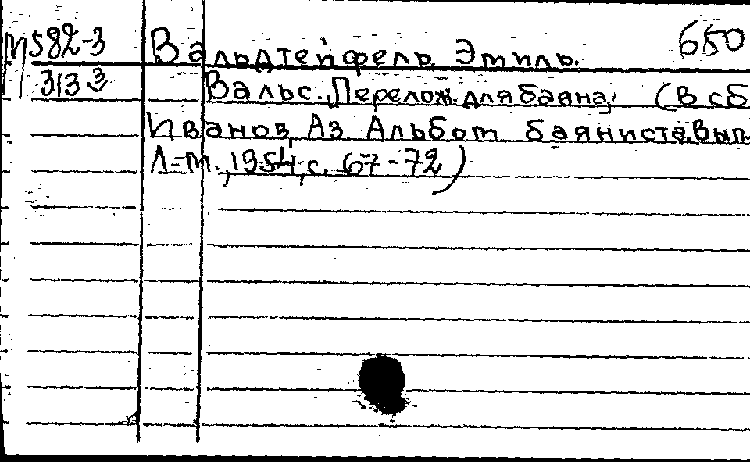 М582-3 Вальдтейфель Эмиль. 650
313 3 Вальс. Перелож. для баяна. (В сб
Иванов Аз Альбом баяниста. Вып.
Л-м., 1954, с. 67-72)